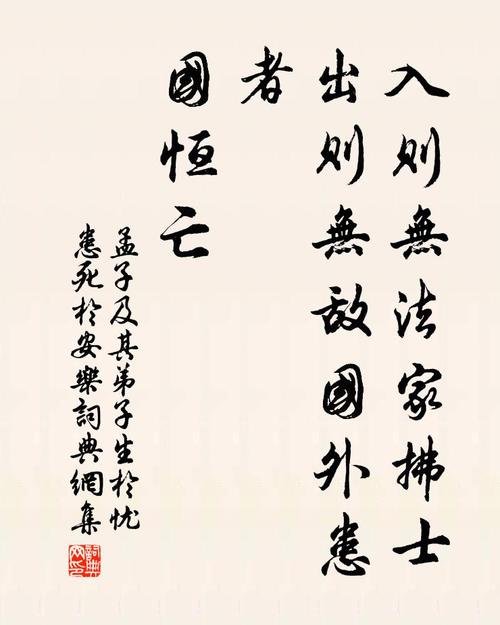 入則無法家拂士
出則無敵國外患
者
國恒亡
孟子及其弟子生於忧
患死於安樂詞典網集
詞典
网印